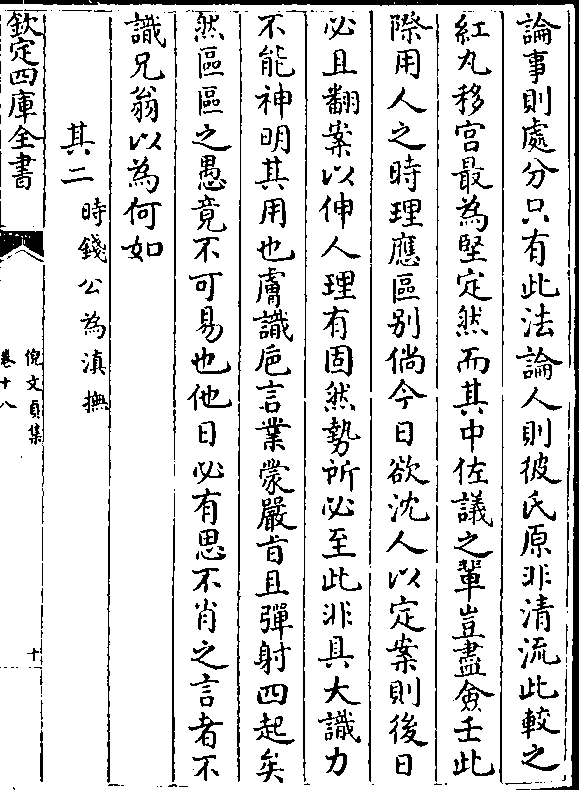 論事則處分只有此法論人則彼氏原非清流此較之
紅丸移宮最為堅定然而其中佐議之輩豈盡僉壬此
際用人之時理應區别倘今日欲沈人以定案則後日
必且翻案以伸人理有固然勢所必至此非具大識力
不能神明其用也膚識巵言業蒙嚴㫖且彈射四起矣
然區區之愚竟不可易也他日必有思不肖之言者不
識兄翁以為何如
其二時錢公為滇撫
欽定四庫全書
倪文貞集
卷十八
十